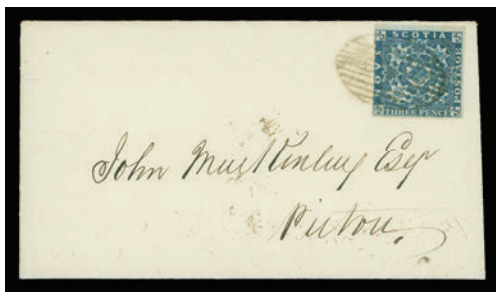 NOVA SCOTIA POSTAGE
THREE PENCE
John Esqr
Pictou,